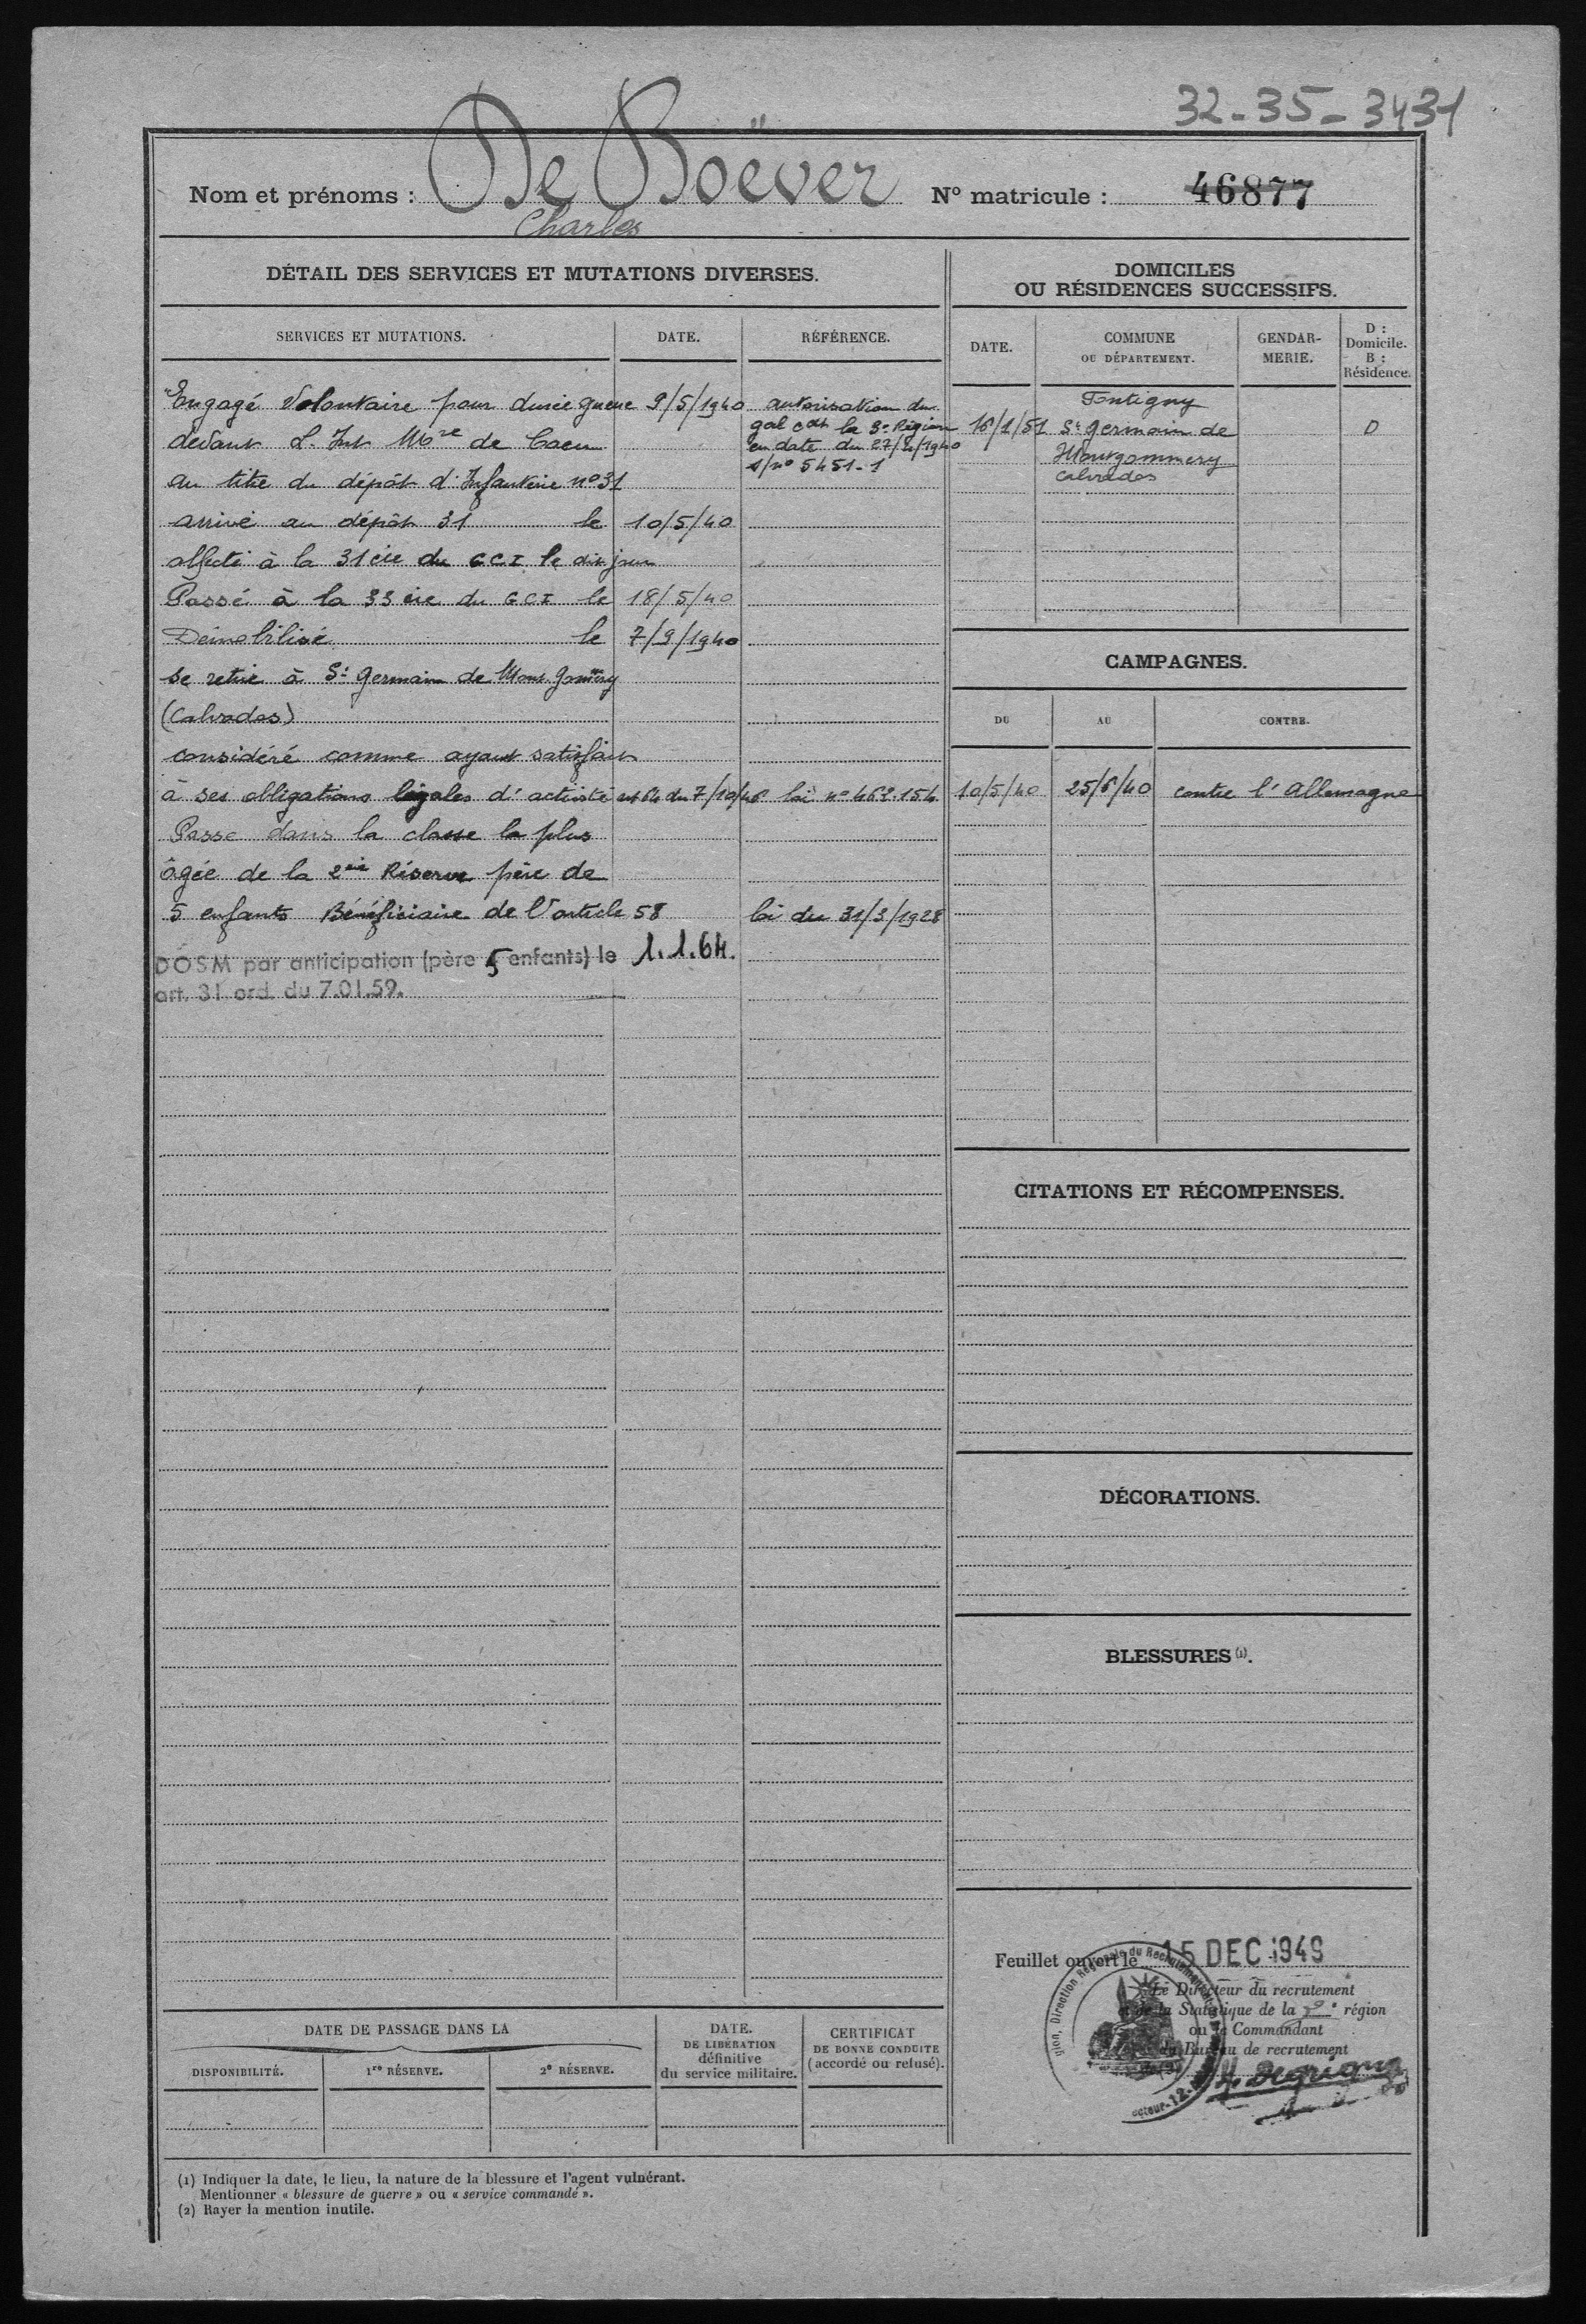 32-35-3431
Nom et prénoms : De Boëver N° matricule : 46877
Charles
DÉTAIL DES SERVICES ET MUTATIONS DIVERSES.
SERVICES ET MUTATIONS. DATE. RÉFÉRENCE.
Engagé Volontaire pour durée guerre 9/5/1940 autorisation du
gal cdt la 3e Région
devant L. Int Mre de Caen en date du 27/4/1940
s/no 5451-1
au titre du dépôt d'Infanterie no 31
arrivé au dépôt 31 le 10/5/40
affecté à la 31 cie du GCI le dit jour
Passé à la 33 cie du GCI le 18/5/40
Démobilisé le 7/9/1940
se retire à St Germain de Montgommery
(Calvados)
considéré comme ayant satisfait
à ses obligations légales d'activité art 64 du 7/10/46 loi no 462.154
Passe dans la classe la plus
âgée de la 2e Réserve père de
5 enfants Bénéficiaire de l'article 58 loi du 31/3/1928
DOSM par anticipation (père 5 enfants) le 1.1.64.
art. 31 ord. du 7.01.59.
DOMICILES
OU RÉSIDENCES SUCCESSIFS.
DATE. COMMUNE
OU DÉPARTEMENT. GENDAR-
MERIE. D :
Domicile.
B :
Résidence.
16/1/51 St Germain de D
Montgommery
Calvados
CAMPAGNES.
DU AU CONTRE.
10/5/40 25/6/40 contre l'Allemagne
CITATIONS ET RÉCOMPENSES.
DÉCORATIONS.
BLESSURES (1).
Feuillet ouvert le 15 DEC 1949
Le Directeur du recrutement
et de la Statistique de la région
ou le Commandant
du Bureau de recrutement
DATE DE PASSAGE DANS LA
DISPONIBILITÉ. 1re RÉSERVE. 2e RÉSERVE.
DATE.
DE LIBÉRATION
définitive
du service militaire.
CERTIFICAT
DE BONNE CONDUITE
(accordé ou refusé).
(1) Indiquer la date, le lieu, la nature de la blessure et l'agent vulnérant.
Mentionner « blessure de guerre » ou « service commandé ».
(2) Rayer la mention inutile.